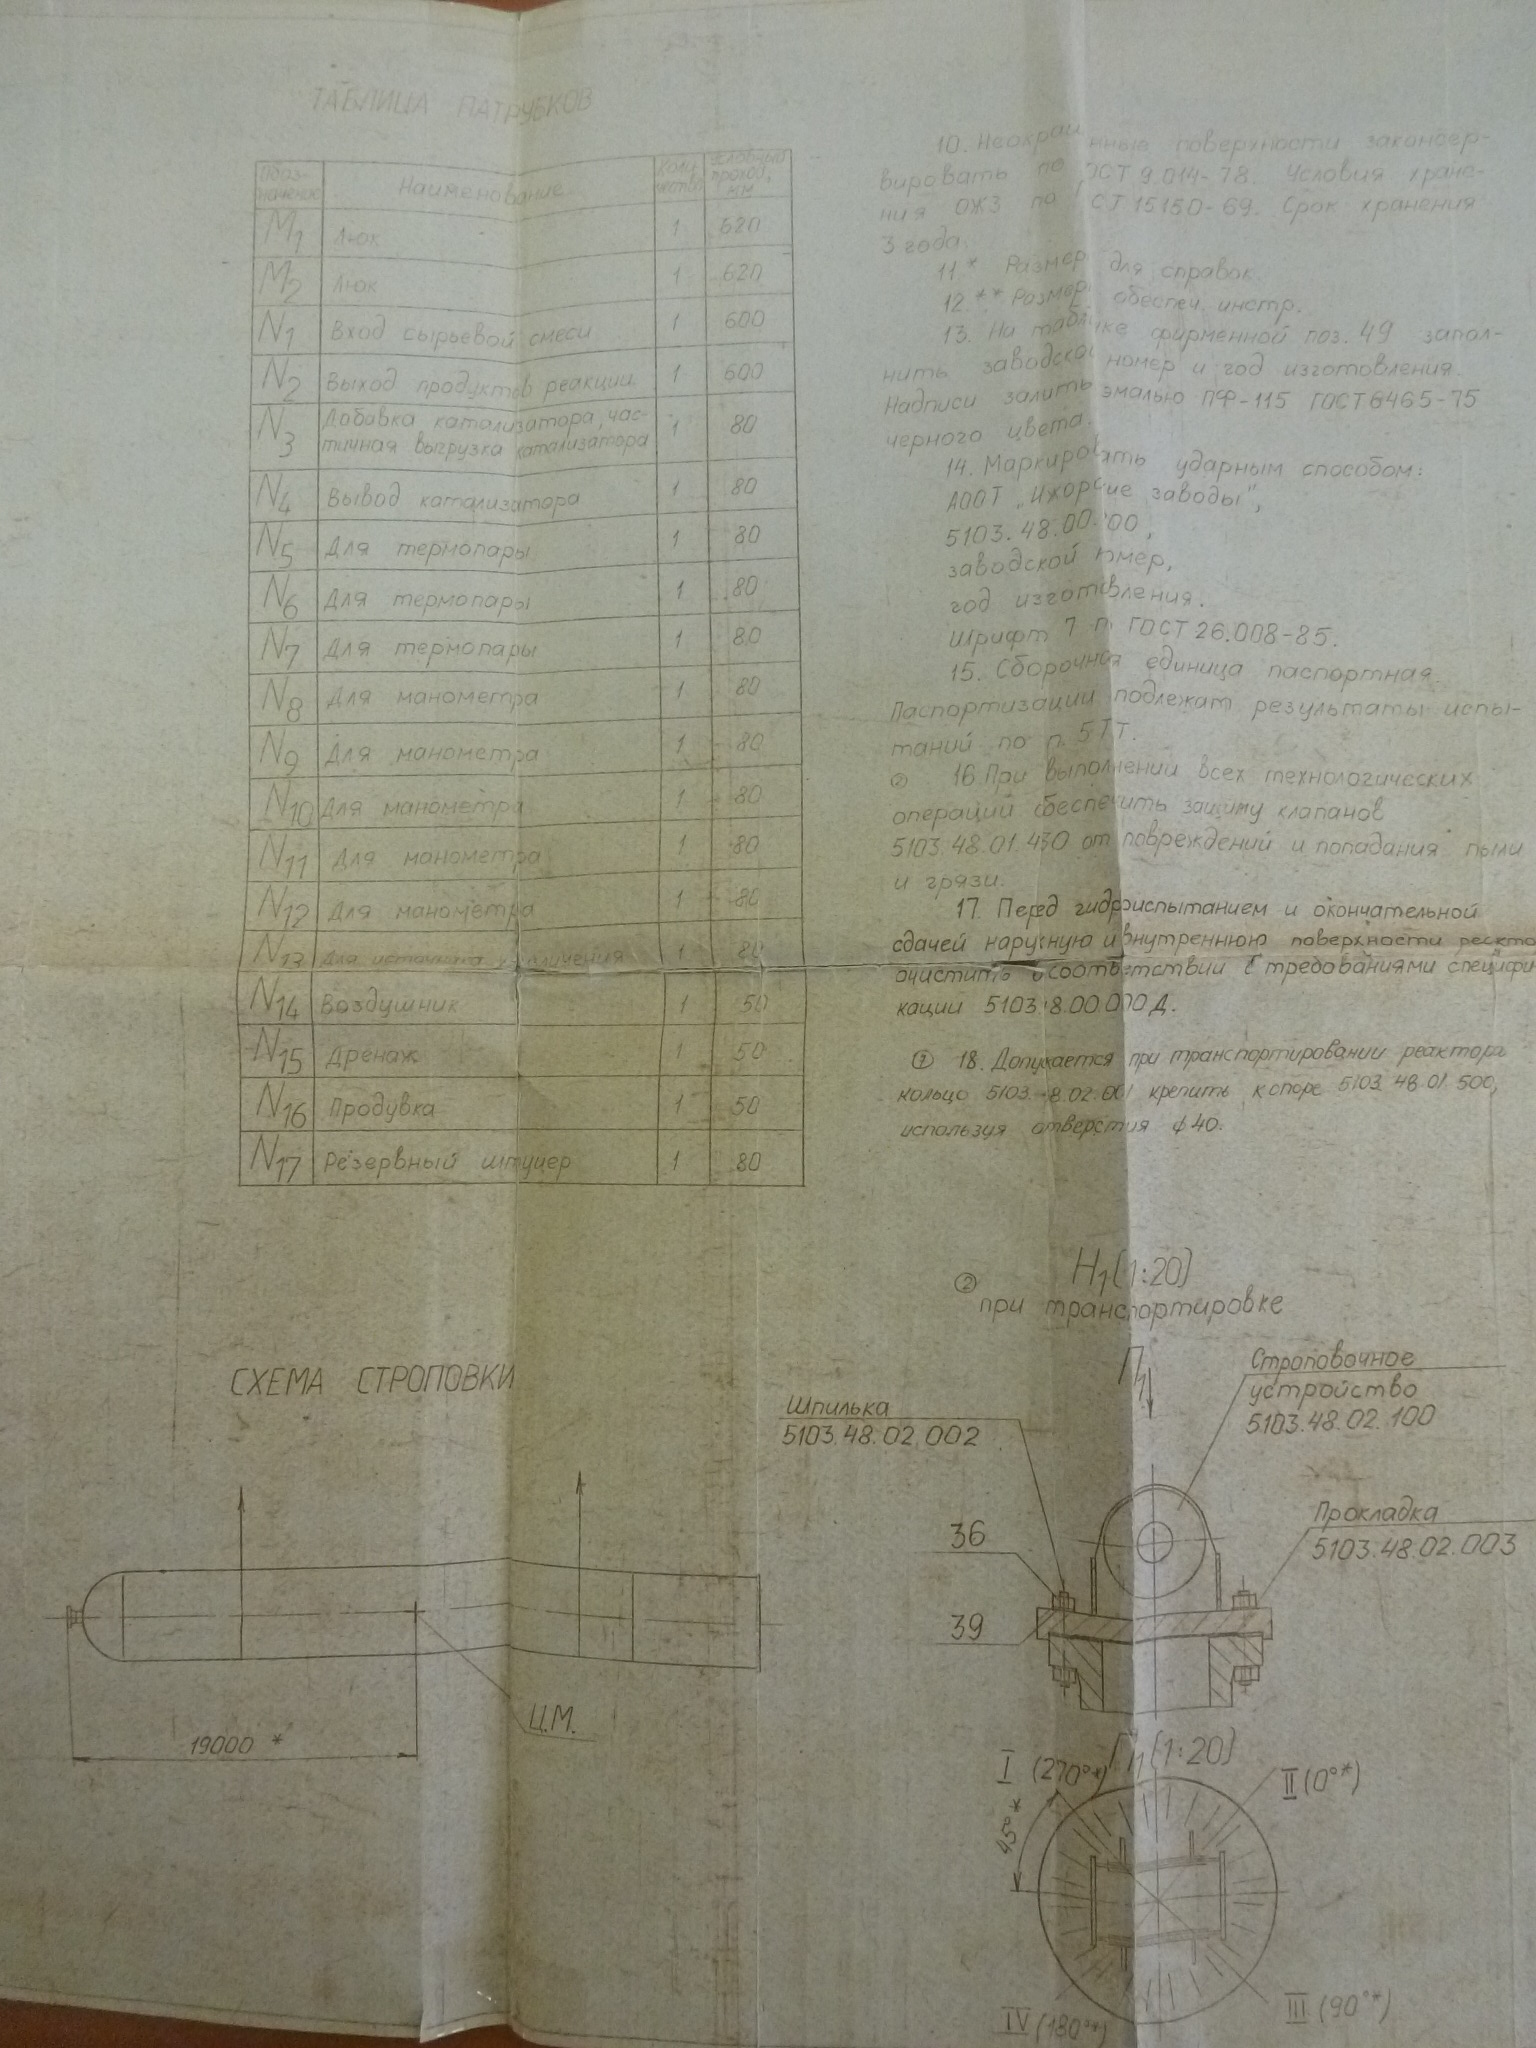 ТАБЛИЦА ПАТРУБКОВ
Обоз-
начение
Наименование
Коли-
чество
Условный
проход,
мм
M1 Люк 1 620
M2 Люк 1 620
N1 Вход сырьевой смеси 1 600
N2 Выход продуктов реакции 1 600
N3 Добавка катализатора, час-
тичная выгрузка катализатора 1 80
N4 Вывод катализатора 1 80
N5 Для термопары 1 80
N6 Для термопары 1 80
N7 Для термопары 1 80
N8 Для манометра 1 80
N9 Для манометра 1 80
N10 Для манометра 1 80
N11 Для манометра 1 80
N12 Для манометра 1 80
N13 Для источника излучения 1 80
N14 Воздушник 1 50
N15 Дренаж 1 50
N16 Продувка 1 50
N17 Резервный штуцер 1 80
10. Неокрашенные поверхности законсер-
вировать по ГОСТ 9.014-78. Условия хране-
ния ОЖ3 по ГОСТ 15150-69. Срок хранения
3 года.
11.* Размеры для справок.
12.** Размеры обеспеч. инстр.
13. На табличке фирменной поз. 49 запол-
нить заводской номер и год изготовления.
Надписи залить эмалью ПФ-115 ГОСТ 6465-75
черного цвета.
14. Маркировать ударным способом:
АООТ „Ижорские заводы",
5103.48.00.000,
заводской номер,
год изготовления.
Шрифт 7 п ГОСТ 26.008-85.
15. Сборочная единица паспортная.
Паспортизации подлежат результаты испы-
таний по п. 5 ТТ.
② 16. При выполнении всех технологических
операций обеспечить защиту клапанов
5103.48.01.430 от повреждений и попадания пыли
и грязи.
17. Перед гидроиспытанием и окончательной
сдачей наружную и внутреннюю поверхности реакто
очистить в соответствии с требованиями специфи
кации 5103.48.00.000Д.
② 18. Допускается при транспортировании реактора
кольцо 5103.48.02.001 крепить к опоре 5103.48.01.500,
используя отверстия ф40.
② H1 (1:20)
при транспортировке
СХЕМА СТРОПОВКИ
19000 *
Ц.М.
П1
Строповочное
устройство
5103.48.02.100
Шпилька
5103.48.02.002
Прокладка
5103.48.02.003
36
39
П1 (1:20)
I (270°*)
II (0°*)
45°*
IV (180°*)
III (90°*)